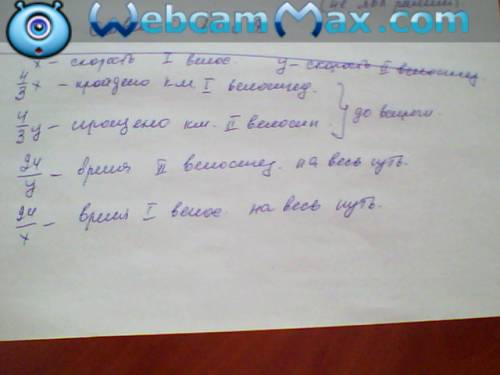 WebcamMax.com
x - скорость I велос. y - скорость II велосипед.
4/3 x - пройдено км I велосипед.
4/3 y - пройдено км. II велосип. } до встреч.
24/y - время II велосипед. на весь путь.
24/x - время I велос. на весь путь.